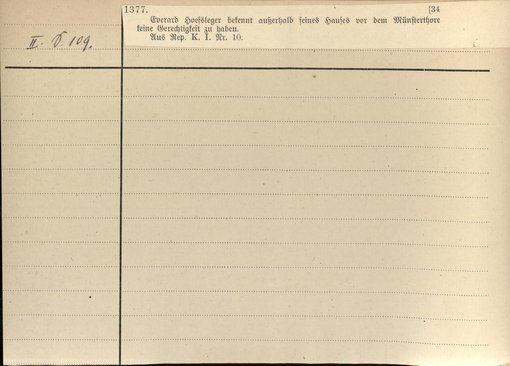 1377. [34
Everard Hoefsleger bekennt außerhalb seines Hauses vor dem Münsterthore
keine Gerechtigkeit zu haben.
Aus Rep. K. I. Nr. 10.
II. D. 109.